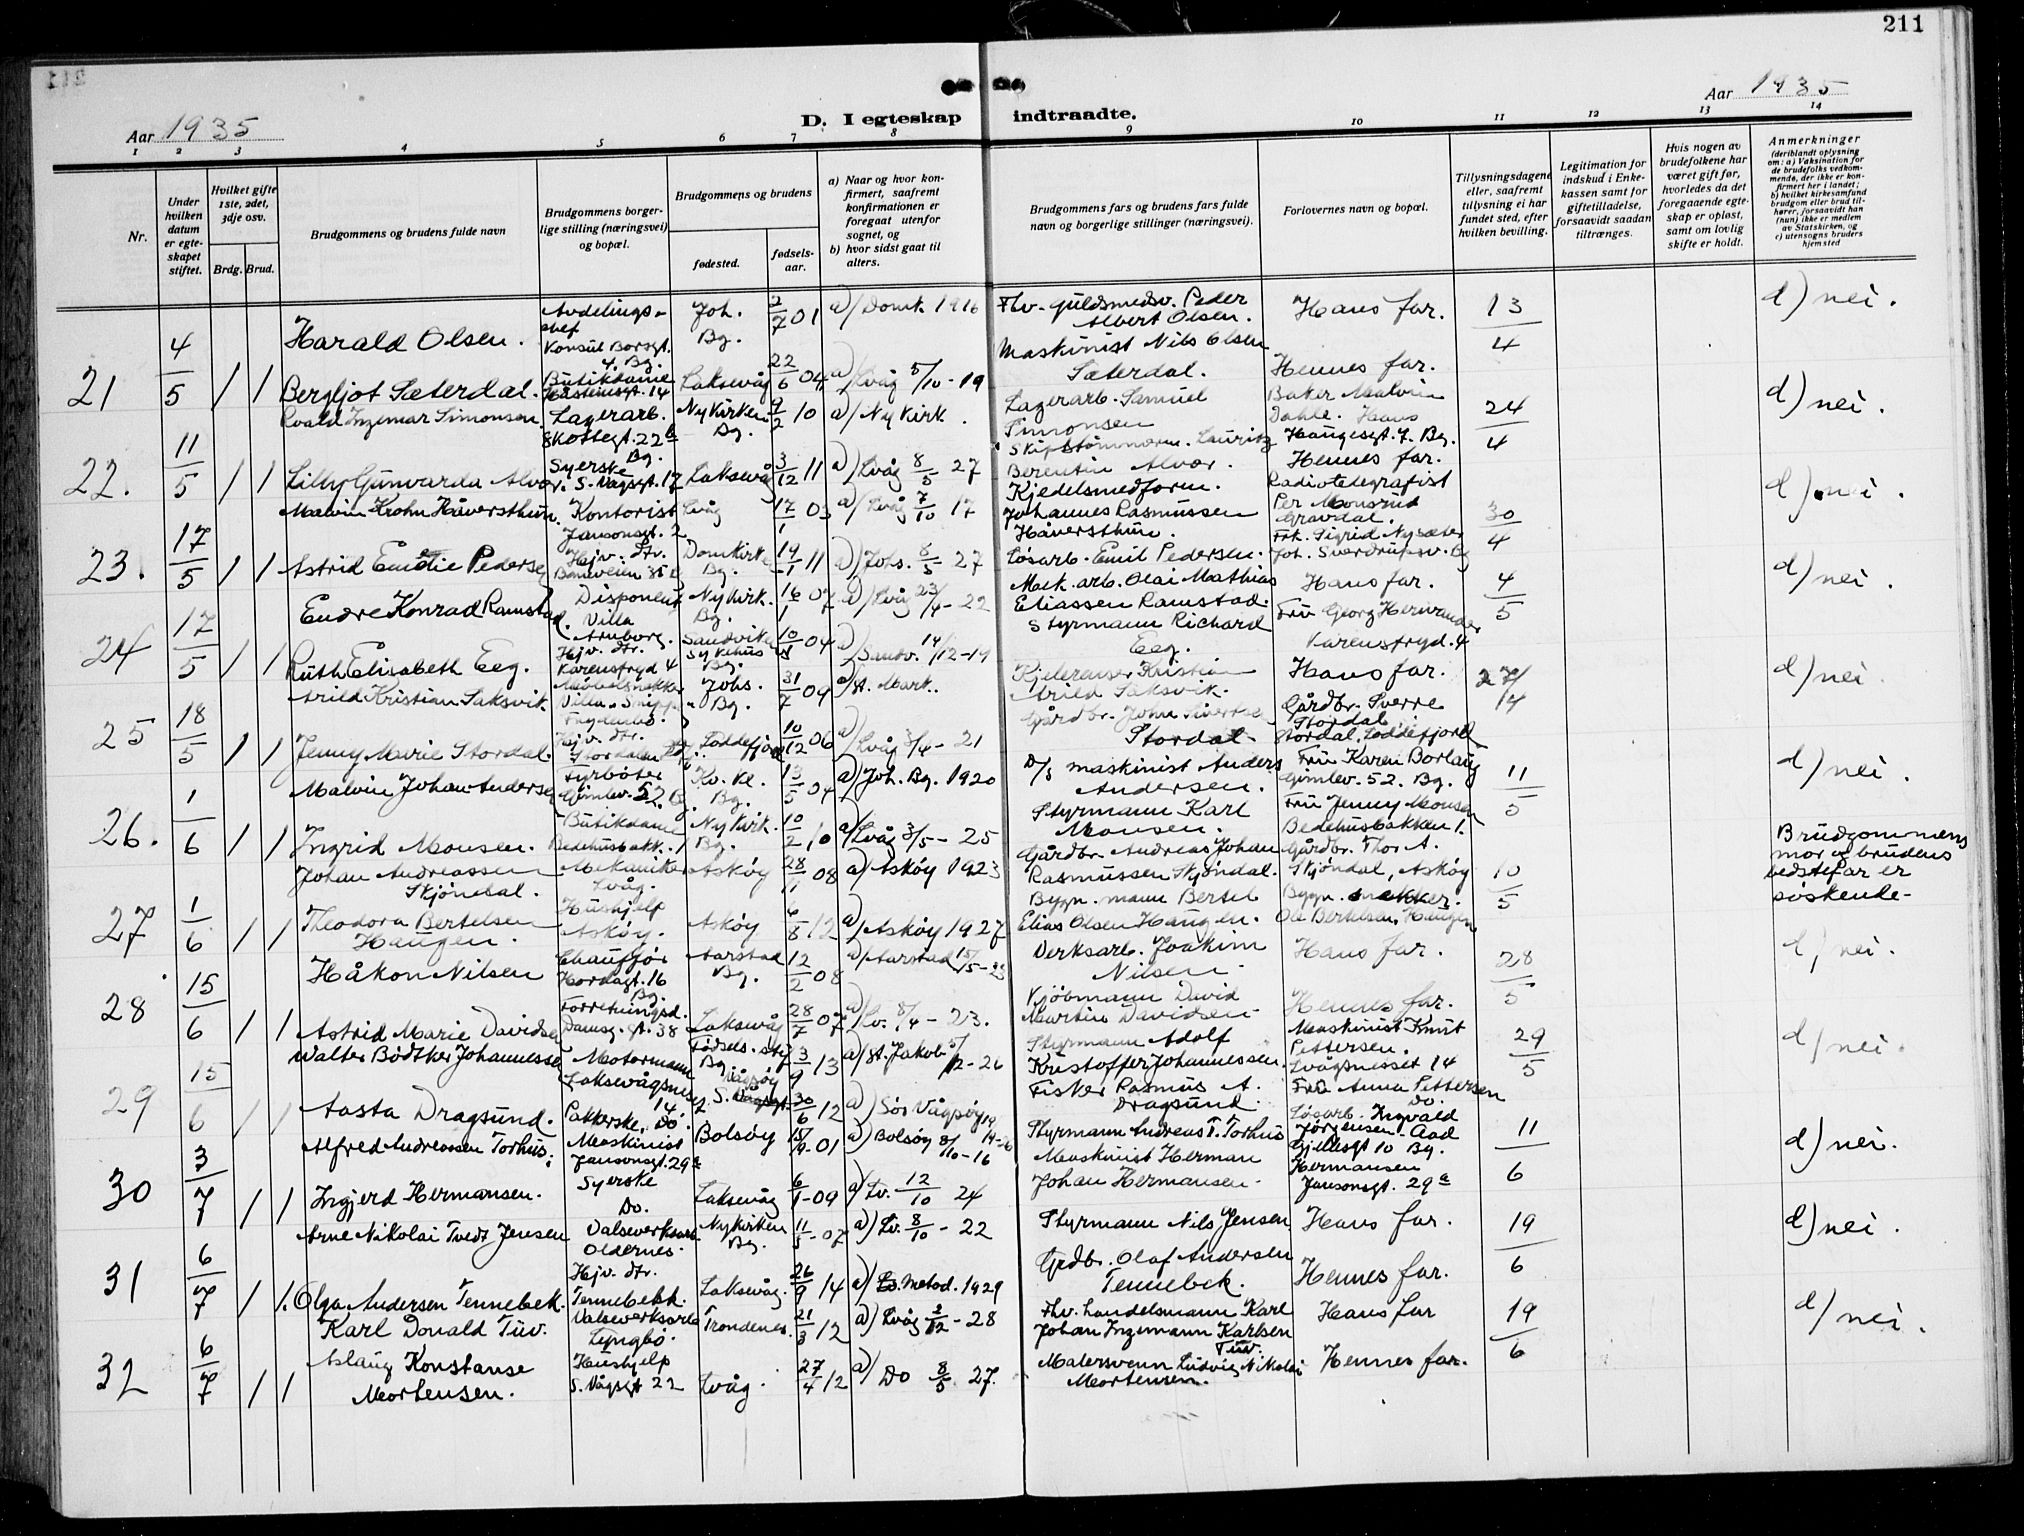 211
Aar 1935
D. I egteskap indtraadte.
Aar 1935
1 2 3 4 5 6 7 8 9 10 11 12 13 14
Nr.
Under hvilken datum er egteskapet stiftet.
Hvilket gifte 1ste, 2det, 3dje osv.
Brdg. Brud.
Brudgommens og brudens fulde navn
Brudgommens borgerlige stilling (næringsvei) og bopæl.
Brudgommens og brudens
fødested.
fødselsaar.
a) Naar og hvor konfirmert, saafremt konfirmationen er foregaat utenfor sognet, og
b) hvor sidst gaat til alters.
Brudgommens fars og brudens fars fulde navn og borgerlige stillinger (næringsvei).
Forlovernes navn og bopæl.
Tillysningsdagene eller, saafremt tillysning ei har fundet sted, efter hvilken bevilling.
Legitimation for indskud i Enkekassen samt for giftetilladelse, forsaavidt saadan tiltrænges.
Hvis nogen av brudefolkene har været gift før, hvorledes da det foregaaende egteskap er opløst, samt om lovlig skifte er holdt.
Anmerkninger
(deriblandt oplysning om: a) Vaksination for de brudefolks vedkommende, der ikke er konfirmert her i landet; b) hvilket kirkesamfund brudgom eller brud tilhører, forsaavidt han (hun) ikke er medlem av Statskirken, og c) utensogns bruders hjemsted
21 4/5 1 1
Harald Olsen. Avdelingschef Konsul Børsgt. 4, Bg. Joh. Bg. 2/7 01 a) Domk. 1916 Fhv. guldsmedsv. Peder Albert Olsen. Hans far. 13/4 d) nei.
Bergljot Sæterdal. Butikdame Laksevåg 22/6 04 a) Lvåg 5/10-19 Maskinist Nils Olsen Sæterdal. Hennes far.
22. 11/5 1 1
Roald Ingemar Simonsen Lagerarb. Skottegt. 22 b Bg. Nykirken Bg. 9/2 10 a) Nykirk. Lagerarb. Samuel Simonsen Baker Malvin Dahle. Hans Haugesgt. 7. Bg. 24/4 d) nei.
Lilly Gunvarda Alvær. Syerske S. Vågsgt. 17 Laksevåg 3/12 11 a) Lvåg 8/5 27 Skipstømmerm. Lauritz Berentin Alvær. Hennes far.
23. 17/5 1 1
Malvin Krohn Håversthun. Kontorist Jansonsgt. 2 Lvåg 17/1 03 a) Lvåg 7/10 17 Kjedelsmedform. Johannes Rasmussen Håversthun. Radiotelegrafist Per Monsrud Gravdal. 30/4 d) nei.
Astrid Emilie Pedersen Hjv. dtr. Domkirke Bg. 19/1 11 a) Johs. 8/5 27 Løsarb. Emil Pedersen. Frk. Sigrid Nysæter Joh. Sverdrupsv. Bg
24 17/5 1 1
Endre Konrad Ramstad. Disponent Villa Nykirk. Bg. 16/1 07 a) Lvåg 23/4-22 Mek. arb. Olai Mathias Eliassen Ramstad. Hans far. 4/5 d) nei.
Ruth Elisabeth Eeg. Hjv. dtr. Karenstryd 4 Sandvik Sykehus Bg. 10/ 04 a) Sandv. 14/12-19 Styrmann Richard Eeg. Fru Georg Karenstryd. 4
25 18/5 1 1
Arild Kristian Saksvik. Møbelsnekker Johs. Bg. 31/7 09 a) St. Mark. Kristian Arild Saksvik. Hans far. 27/4 d) nei.
Jenny Marie Stordal. Hjv. dtr. Stordalen Loddefjord 10/12 06 a) Lvåg 3/4-21 Gårdbr. John Sivertsen Stordal. Gårdbr. Sverre Stordal Stordal, Loddefjord
26. 1/6 1 1
Malvin Johan Andersen Fyrbøter Gimlev. 52 Bg. Ko. Kl. Bg. 13/5 04 a) Joh. Bg. 1920 D/s maskinist Anders Andersen. Fru Karen Borlaug Gimlev. 52. Bg. 11/5 d) nei.
Ingrid Monsen. Butikdame Bedehusbakk. 1 Nykirk. Bg. 10/2 10 a) Lvåg 3/5-25 Styrmann Karl Monsen. Fru Jenny Monsen Bedehusbakken 1.
27 1/6 1 1
Johan Andreassen Skjøndal. Mekaniker Lvåg. Askøy 28/11 08 a) Askøy 1923 Gårdbr. Andreas Johan Rasmussen Skjøndal. Gårdbr. Thor A. Skjøndal, Askøy 10/5 Brudgommens mor og brudens bedstefar er søskende-
Theodora Bertelsen Haugen. Hushjelp Askøy. Askøy 6/8 12 a) Askøy 1927 Bygn. mann Bertel Elias Olsen Haugen. Bygn. snekker. Ole Bertelsen Haugen
28 15/6 1 1
Håkon Nilsen Chauffør Hordagt. 16 Bg. Aarstad Bg. 12/2 08 a) Aarstad Verksarb. Joakim Nilsen. Hans far. 28/5 d) nei.
Astrid Marie Davidsen Forretningsd. Damsg. gt. 38 Laksevåg 28/7 07 a) Lv. 8/4-23. Kjøbmann David Martin Davidsen Hennes far.
29 15/6 1 1
Walter Bødtker Johannessen Motormann Laksevågsneset 14. Fødsels. st. Bg 3/9 13 a) St. Jakob 5/12-26 Styrmann Adolf Kristoffer Johannessen. Maskinist Knut Pettersen. Lvågsnesset 14 29/5 d) nei.
Aasta Dragsund. Pakkerske, Do. S. Vågsøy 30/6 12 a) Sør Vågsøy Fisker Rasmus A. Dragsund. Fru Anna Pettersen Do.
30 3/7 1 1
Alfred Andreassen Torhus. Maskinist Jansonsgt. 29 a Bolsøy 15/9-01 a) Bolsøy 8/10-16 Styrmann Andreas T. Torhus Løsarb. Ingvald Jørgensen Aad Gjellesgt 10 Bg. 11/6 d) nei.
Ingjerd Hermansen. Syerske Do. Laksevåg 6/1-09 a) Lv. 12/10 24 Maskinist Herman Johan Hermansen. Hermansen Jansonsgt. 29 a
31 6/7 1 1.
Arne Nikolai Tvedt Jensen Valseverksarb. Oldernes. Nykirken Bg. 11/5-07 a) Lv. 8/10-22 Styrmann Nils Jensen Hans far. 19/6 d) nei.
Olga Andersen Tennebek. Hjv. dtr. Tennebekk. Laksevåg. 26/9 14 a) Metod. 1929 Grdbr. Olaf Andersen Tennebek. Hennes far.
32 6/7 1 1
Karl Donald Tuv. Valseverksarb Lyngbø. Trondenes. 21/3 12 a) Lvåg 2/12-28 Fhv. handelsmann Karl Johan Ingemann Karlsen Tuv. Hans far 19/6 d) nei.
Aslaug Konstanse Mortensen. Hushjelp S. Vågsgt 22 Lvåg. 27/4 12 a) Do 8/5 27. Malersvenn Ludvig Nikolai Mortensen. Hennes far.